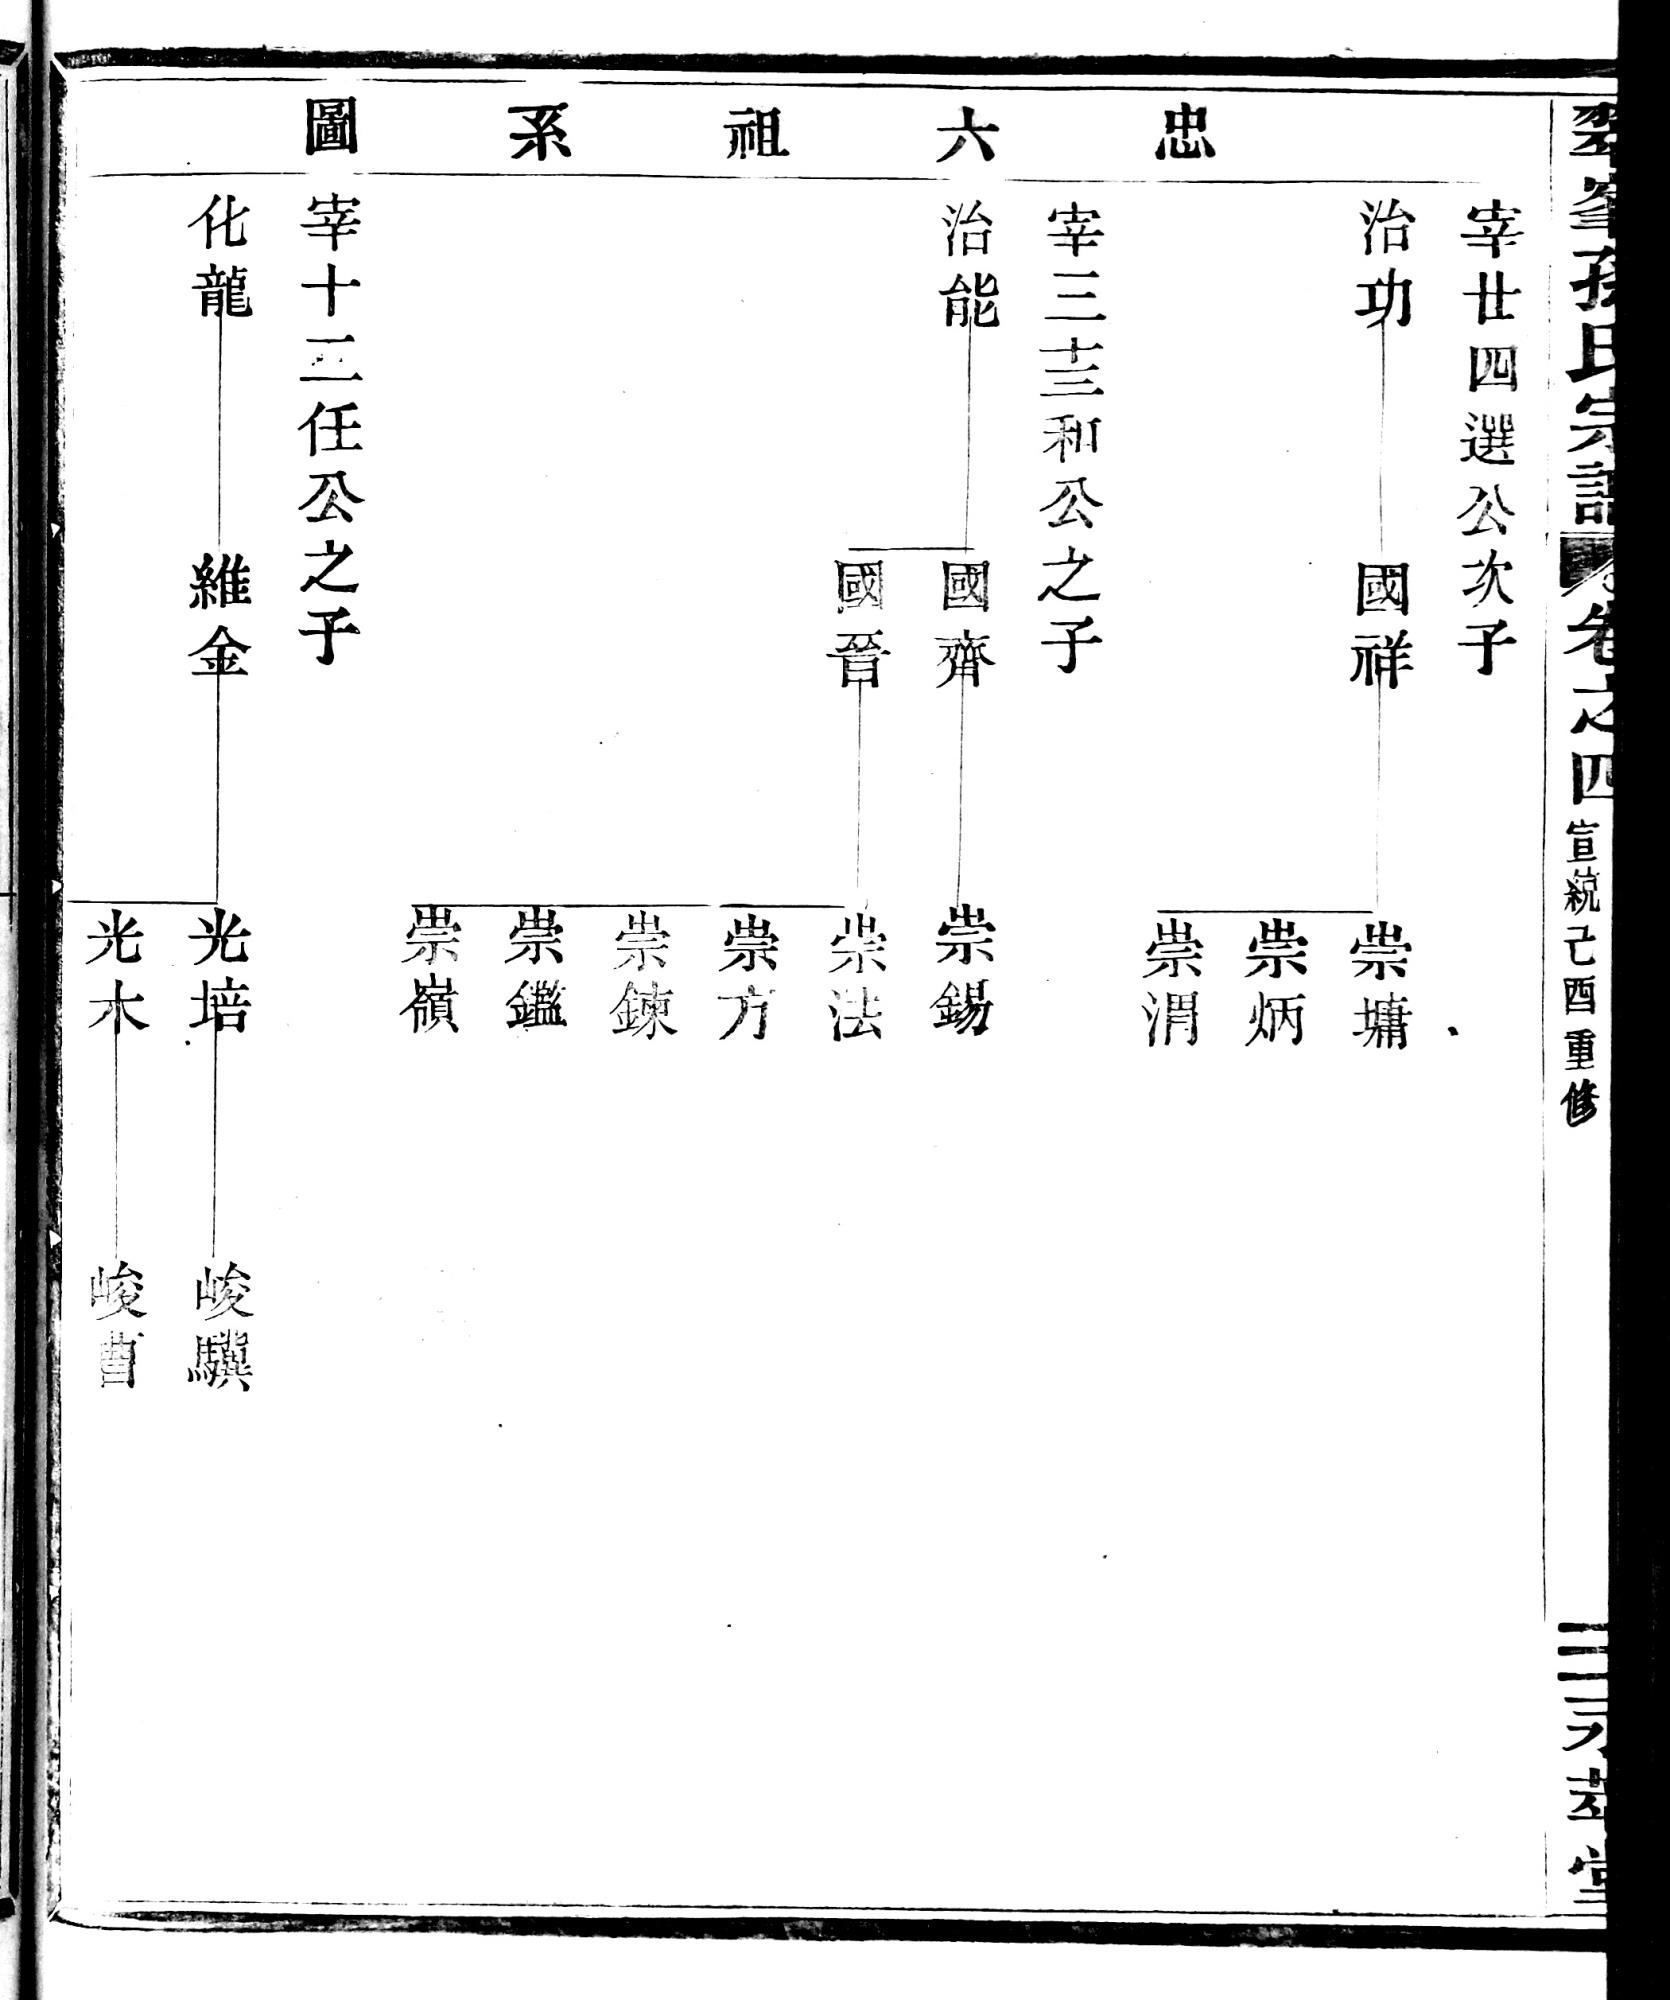 翠峯孫氏宗譜
卷之四
宣統己酉重修
永萃堂
忠六祖系圖
宰廿四選公次子
治功
國祥
崇墉
崇炳
崇渭
宰三十三和公之子
治能
國齊
國晉
崇錫
崇法
崇方
崇鍊
崇鑑
崇嶺
宰十二任公之子
化龍
維金
光培
光木
峻驥
峻曹